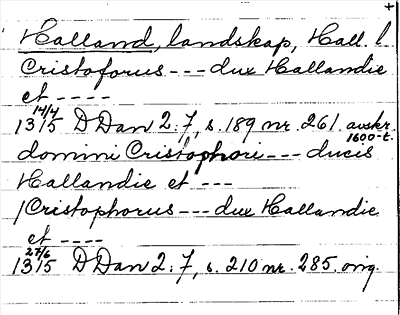 +
Halland, landskap, Hall. l
Cristoforus --- dux Hallandie
et ----
14/4
1315 DDan 2:7, s. 189 nr. 261. avskr.
1600-t.
domini Cristophori --- ducis
Hallandie et ---
/Cristophorus --- dux Hallandie
et ----
27/6
1315 DDan 2:7, s. 210 nr. 285. orig.